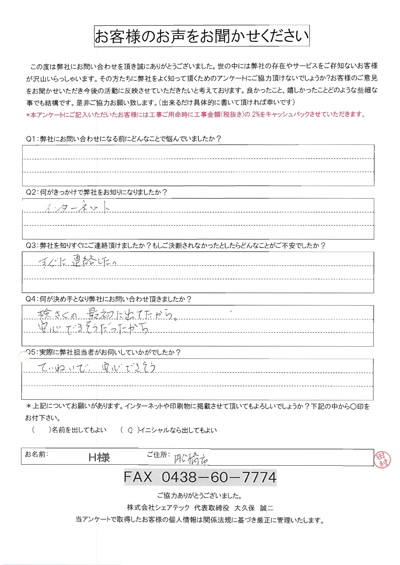 お客様のお声をお聞かせください
この度は弊社にお問い合わせを頂き誠にありがとうございました。世の中には弊社の存在やサービスをご存知ないお客様
が沢山いらっしゃいます。その方たちに弊社をよく知って頂くためのアンケートにご協力頂けないでしょうか？お客様のご意見
をお聞かせいただき今後の活動に反映させていただきたいと考えております。良かったこと、嬉しかったことどのような些細な
事でも結構です。是非ご協力お願い致します。（出来るだけ具体的に書いて頂ければ幸いです）
*本アンケートにご記入いただいたお客様には工事ご用命時に工事金額（税抜き）の2%をキャッシュバックさせていただきます。
Q1：弊社にお問い合わせになる前にどんなことで悩んでいましたか？
Q2：何がきっかけで弊社をお知りになりましたか？
インターネット
Q3：弊社を知りすぐにご連絡頂けましたか？もしご決断されなかったとしたらどんなことがご不安でしたか？
すぐに連絡した。
Q4：何が決め手となり弊社にお問い合わせ頂きましたか？
検さくの最初に出てたから。
安心できそうだったから
Q5：実際に弊社担当者がお伺いしていかがでしたか？
ていねいで、安心できそう
*上記についてお願いがあります。インターネットや印刷物に掲載させて頂いてもよろしいでしょうか？下記の中から○印を
お付け下さい。
（　）名前を出してもよい　（○）イニシャルなら出してもよい
お名前： H様 ご住所： 船橋市
田村
FAX 0438-60-7774
ご協力ありがとうございました。
株式会社シェアテック 代表取締役 大久保 誠二
当アンケートで取得したお客様の個人情報は関係法規に基づき厳正に管理いたします。